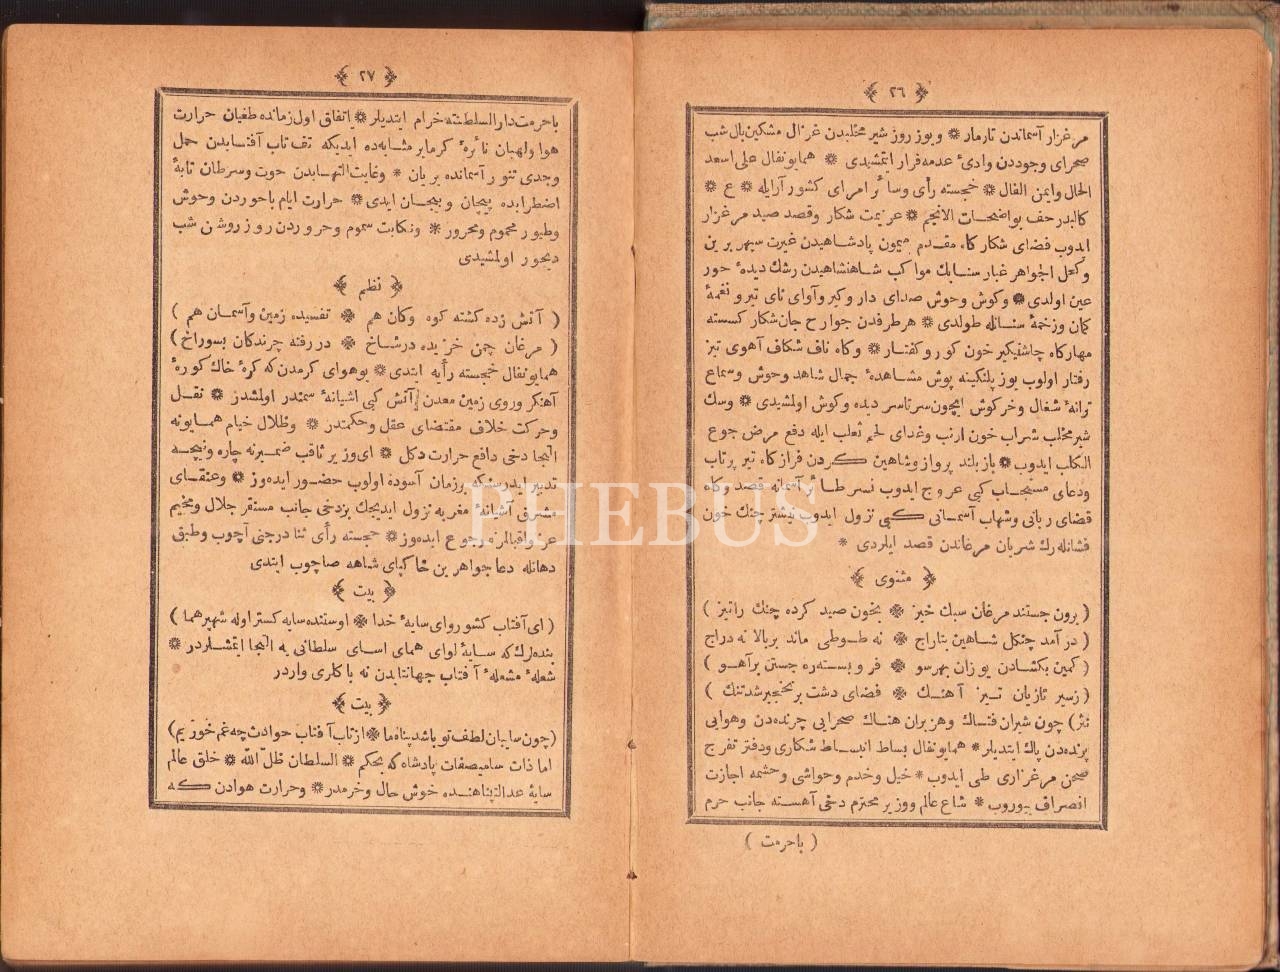 ﴿ ٢٦ ﴾
مرغزار آسماندن تارمار ❊ ویوز روز شیر مخلبدن غزال مشکین‌بال شب
صحرای وجوددن وادیٔ عدمه فرار ایتمشیدی ❊ همایونفال علی اسعد
الحال وایمن الفال ❊ خجسته رأی وسائر امرای کشور آرایله ❊ ع ❊
کالبدر حف بواضحات الانجم ❊ عزیمت شکار وقصد صید مرغزار
ایدوب فضای شکارکاه مقدم میمون پادشاهیدن غیرت سپهر برین
وکحل الجواهر غبار سنابك مواکب شاهنشاهیدن رشك دیدهٔ حور
عین اولدی ❊ وکوش وحوش صدای دار وکیر وآوای نای تیر و نغمهٔ
کمان وزخمهٔ سنانله طولدی ❊ هر طرفدن جوارح جان‌شکار کسسته
مهارکاه چاشنیکیر خون کور و کفتار ❊ وکاه ناف شکاف آهوی تیز
رفتار اولوب یوز پلنکینه پوش مشاهدهٔ جمال شاهد وحوش وسماع
ترانهٔ شغال وخرکوش ایچون سرتاسر دیده وکوش اولمشیدی ❊ وسك
شیرمخلب شراب خون ارنب وغدای لحم ثعلب ایله دفع مرض جوع
الکلب ایدوب ❊ باز بلند پرواز وشاهین کردن فراز کاه تیر پرتاب
ودعای مستجاب کبی عروج ایدوب نسر طائر آسمانه قصد وکاه
قضای ربانی وشهاب آسمانی کبی نزول ایدوب نیشتر چنك خون
فشانله رك شریان مرغاندن قصد ایلردی ❊
﴿ مثنوی ﴾
( برون جستند مرغان سبك خیز ❊ بخون صید کرده چنك راتیز )
( در آمد چنکل شاهین بتاراج ❊ نه طوطی ماند بربالا نه دراج )
( کمین بکشادن یوزان بهرسو ❊ فرو بسته ره جستن برآهو )
( زسیر تازیان تیز آهنك ❊ فضای دشت برنخجیر شدتنك )
نثر ) چون شیران فتاك وهزبران هتاك صحرایی چرنده‌دن وهوایی
پرنده‌دن پاك ایتدیلر ❊ همایونفال بساط انبساط شکاری ودفتر تفرج
صحن مرغزاری طی ایدوب ❊ خیل وخدم وحواشی وحشمه اجازت
انصراف بیوروب ❊ شاع عالم ووزیر محترم دخی آهسته جانب حرم
( باحرمت )
﴿ ٢٧ ﴾
باحرمت دارالسلطنته خرام ایتدیلر ❊ یا اتفاق اول زمانده طغیان حرارت
هوا ولهبان نائرهٔ کرما بر مثابه‌ده ایدیکه تف تاب آفتابدن حمل
وجدی تنور آسمانده بریان ❊ وغایت التهابدن حوت وسرطان تابهٔ
اضطرابده پیچان وبیجان ایدی ❊ حرارت ایام باحوردن وحوش
وطیور محموم ومحرور ❊ ونکابت سموم وحروردن روز روشن شب
دیجور اولمشیدی
﴿ نظم ﴾
( آتش زده کشته کوه وکان هم ❊ تفسیده زمین وآسمان هم )
( مرغان چمن خزیده درشاخ ❊ دررفته چرندکان بسوراخ )
همایونفال خجسته رأیه ایتدی ❊ بوهوای کرمدن که کرهٔ خاك کورهٔ
آهنکر وروی زمین معدن آتش کبی اشیانهٔ سمندر اولمشدر ❊ نقل
وحرکت خلاف مقتضای عقل وحکمتدر ❊ وظلال خیام همایونه
التجا دخی دافع حرارت دکل ❊ ای وزیر ثاقب ضمیر نه چاره ونیجه
تدبیر ایدرسنکه برزمان آسوده اولوب حضور ایده‌وز ❊ وعنقای
مشرق آشیانهٔ مغربه نزول ایدیجك بزدخی جانب مستقر جلال ومخیم
عز واقبالمزه رجوع ایده‌وز ❊ خجسته رأی ثنا درجنی آچوب وطبق
دهانله دعا جواهرین خاکپای شاهه صاچوب ایتدی
﴿ بیت ﴾
( ای آفتاب کشور روای سایهٔ خدا ❊ اوستنده سایه کستر اوله شهپر هما )
بنده‌لرك که سایهٔ لوای همای اسای سلطانی به التجا ایتمشلردر ❊
شعلهٔ مشعلهٔ آفتاب جهانتابدن نه باکلری واردر
﴿ بیت ﴾
(چون سایبان لطف تو باشد پناه ما ❊ ازتاب آفتاب حوادث چه غم خوریم)
اما ذات سامیصفات پادشاه که بحکم ❊ السلطان ظل الله ❊ خلق عالم
سایهٔ عدالتپناهنده خوش حال وخرمدر ❊ وحرارت هوادن که
PHEBUS